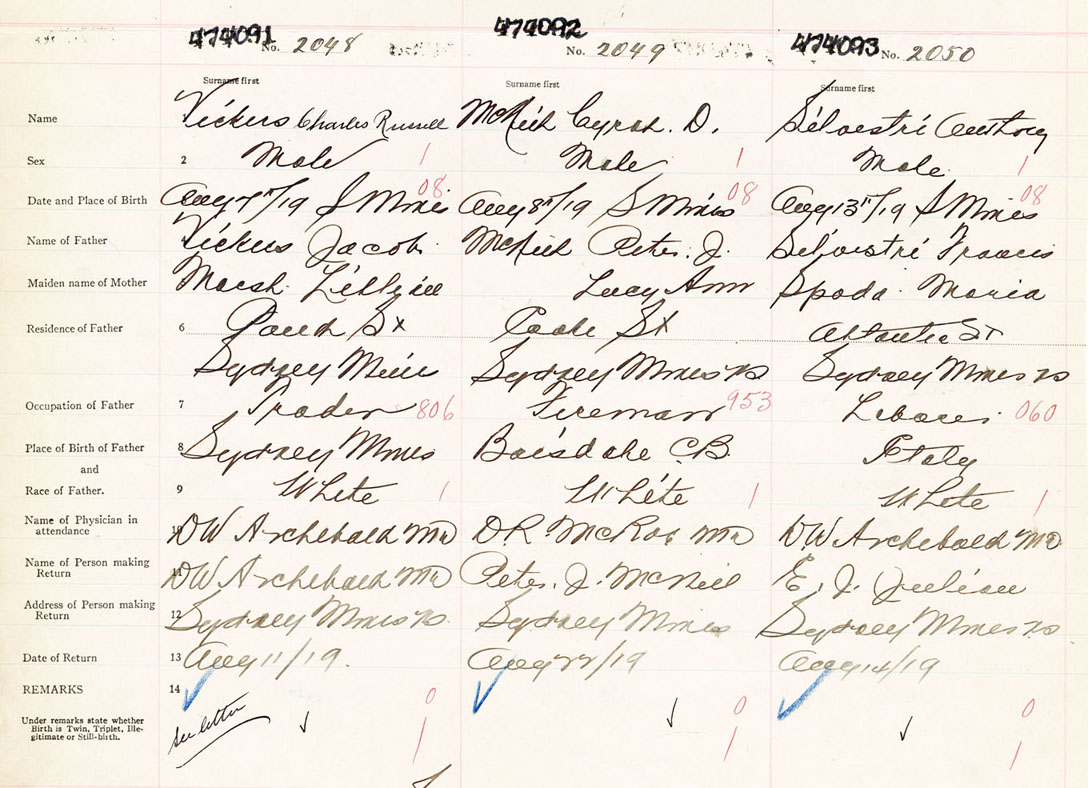 474091 No. 2048 474092 No. 2049 474093 No. 2050
Surname first Surname first Surname first
Name Vickers Charles Russell McNeil Cyrol. D. Silvestri Anthony
Sex 2 Male 1 Male 1 Male 1
08 08 08
Date and Place of Birth Aug 7th/19 S Mines Aug 8th/19 S Mines Aug 13th/19 S Mines
Name of Father Vickers Jacob McNeil Peter. J. Silvestri Francis
Maiden name of Mother Marsh. Lucy Ann Spoda. Maria
Residence of Father 6 St St Atlantic St
Sydney Mines Sydney Mines ns Sydney Mines ns
Occupation of Father 7 Trader 806 Fireman 953 Laborer 060
Place of Birth of Father 8 Sydney Mines Boisdale C.B. Italy
and
Race of Father. 9 White 1 White 1 White 1
Name of Physician in
attendance 10 DW Archibald MD DR McRae MD DW Archibald MD
Name of Person making
Return 11 DW Archibald MD Peter. J. McNeil E. J. Julian
Address of Person making
Return 12 Sydney Mines ns. Sydney Mines Sydney Mines ns
Date of Return 13 Aug 11/19. Aug 22/19 Aug 14/19
REMARKS 14
0 0 0
Under remarks state whether
Birth is Twin, Triplet, Ille-
gitimate or Still-birth.
see letter
1 1 1